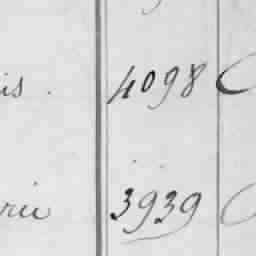 is . 4098
rie 3939